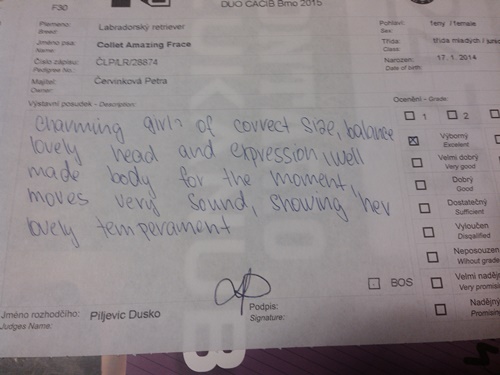 F30
DUO CACIB Brno 2015
Plemeno: Labradorský retriever
Breed:
Pohlaví: feny / female
Sex:
Jméno psa: Collet Amazing Frace
Name:
Třída: třída mladých / junio
Class
Číslo zápisu: ČLP/LR/28874
Pedigree No.:
Narozen: 17. 1. 2014
Date of birth:
Majitel: Červinková Petra
Owner:
Výstavní posudek - Description:
charming girl of correct size, balance
lovely head and expression, well
made body for the moment,
moves very sound, showing her
lovely temperament
Ocenění - Grade:
1 2
Výborný
Excelent
Velmi dobrý
Very good
Dobrý
Good
Dostatečný
Sufficient
Vyloučen
Disqalified
Neposouzen
Without grade
Velmi naděj
Very promisi
Nadějný
Promisin
BOS
Jméno rozhodčího: Piljevic Dusko
Judges Name:
Podpis:
Signature: